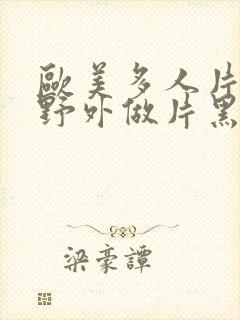 歐美多人片
野外做片黑
梁豪譚